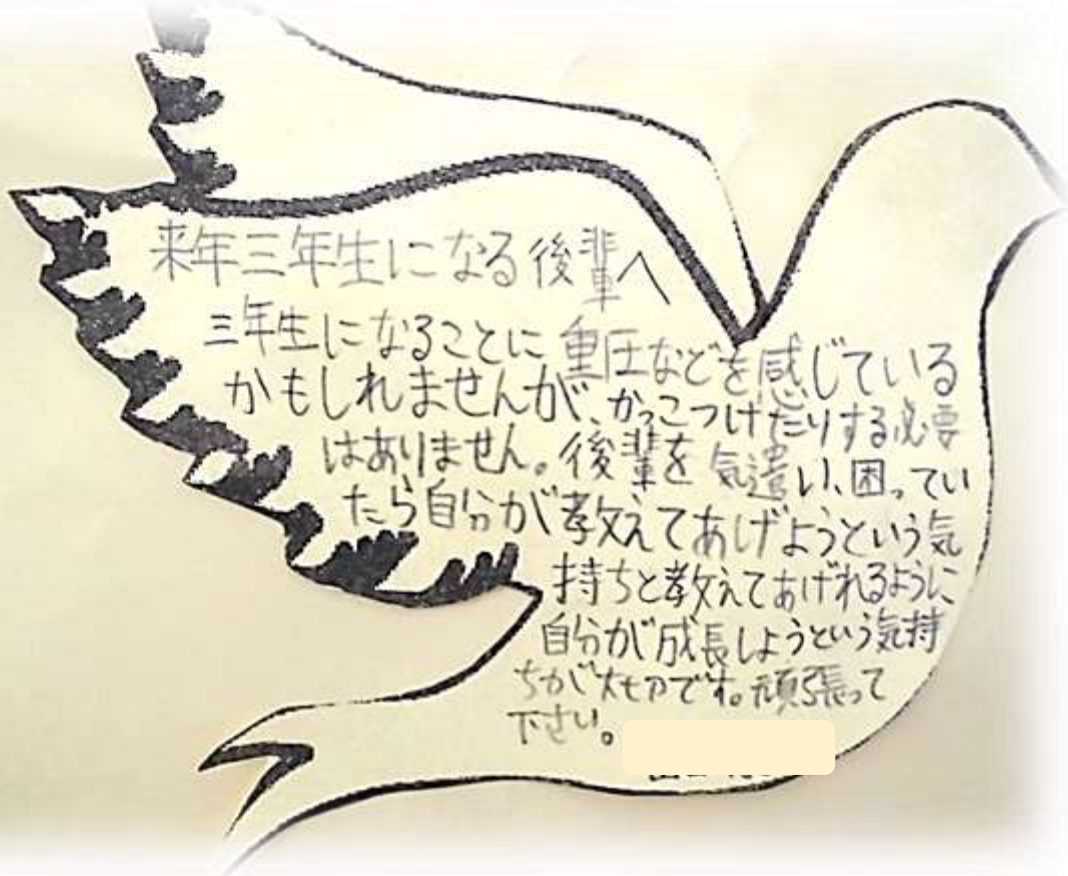 来年三年生になる後輩へ
三年生になることに重圧などを感じている
かもしれませんが、かっこつけたりする必要
はありません。後輩を気遣い、困ってい
たら自分が教えてあげようという気
持ちと教えてあげれるように、
自分が成長しようという気持
ちが大切です。頑張って
下さい。